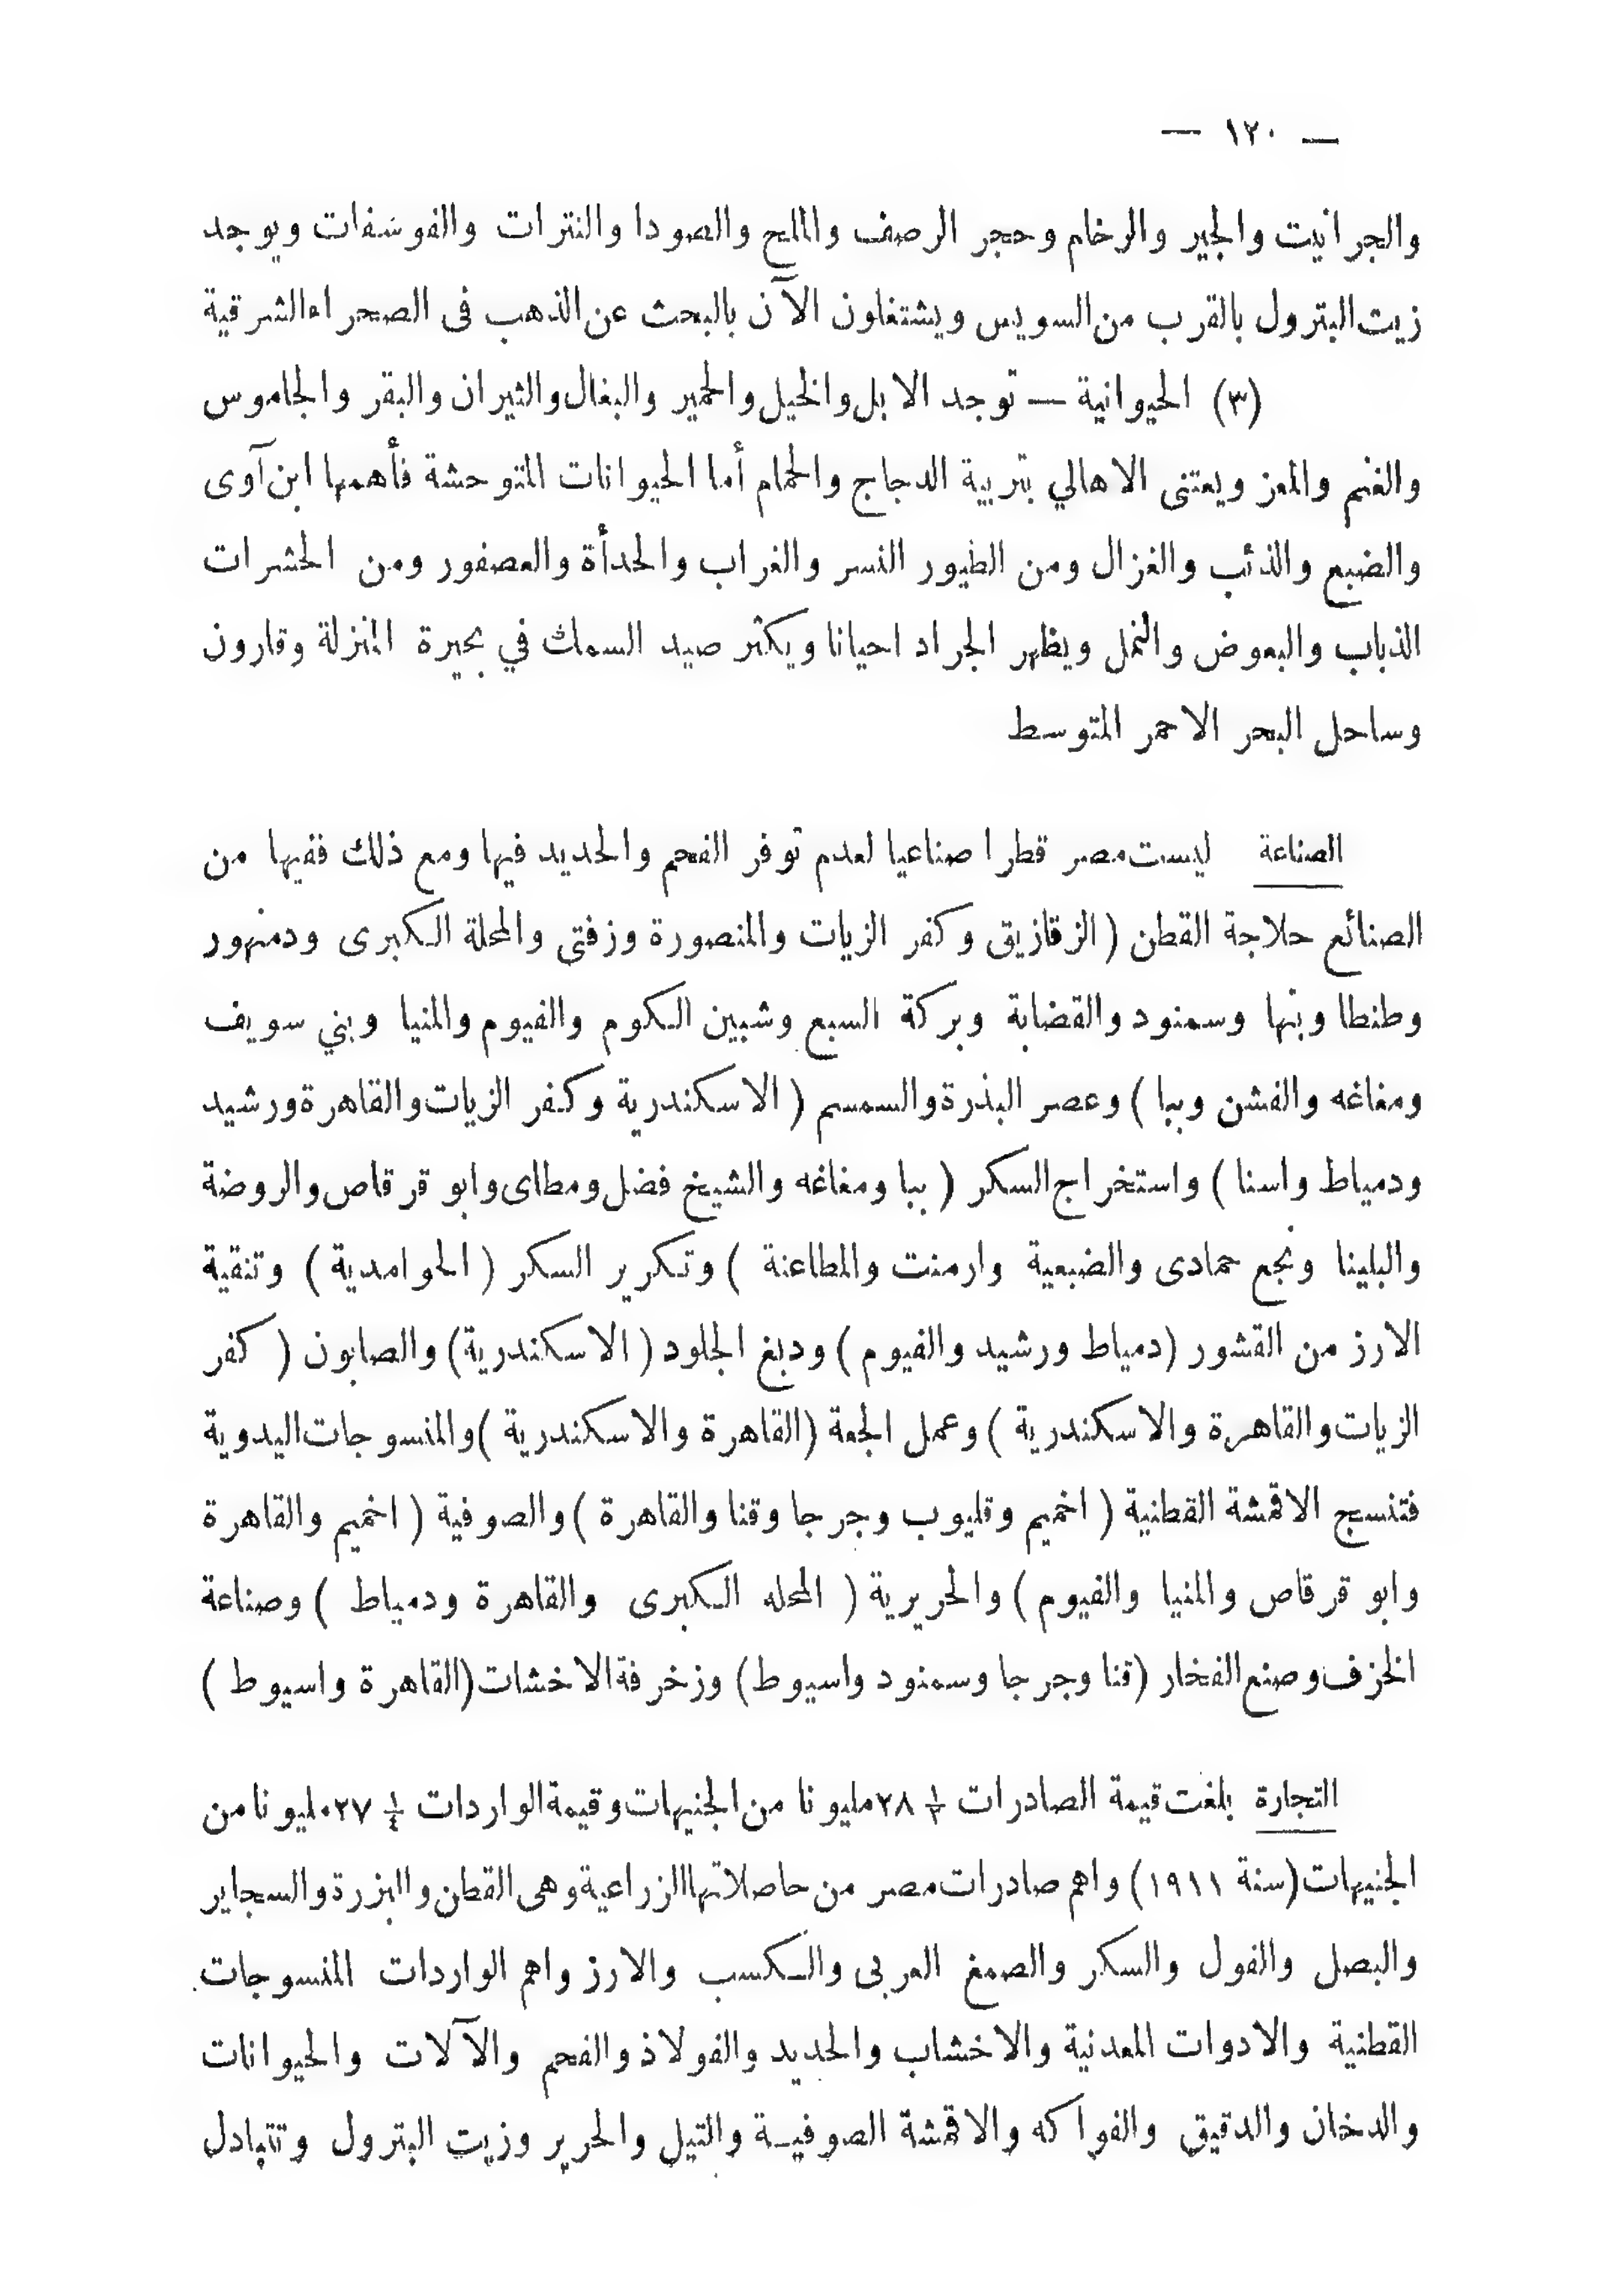 — ١٢٠ —
والجرانيت والجير والرخام وحجر الرصف والملح والصودا والنترات والفوسفات ويوجد
زيت البترول بالقرب من السويس ويشتغلون الآن بالبحث عن الذهب فى الصحراء الشرقية
(٣) الحيوانية — توجد الابل والخيل والحمير والبغال والثيران والبقر والجاموس
والغنم والمعز ويعتنى الاهالي بتربية الدجاج والحمام أما الحيوانات المتوحشة فأهمها ابن آوى
والضبع والذئب والغزال ومن الطيور النسر والغراب والحدأة والعصفور ومن الحشرات
الذباب والبعوض والنمل ويظهر الجراد احيانا ويكثر صيد السمك في بحيرة المنزلة وقارون
وساحل البحر الاحمر المتوسط
الصناعة ليست مصر قطرا صناعيا لعدم توفر الفحم والحديد فيها ومع ذلك ففيها من
الصنائع حلاجة القطن (الزقازيق وكفر الزيات والمنصورة وزفتى والمحلة الكبرى ودمنهور
وطنطا وبنها وسمنود والقضابة وبركة السبع وشبين الكوم والفيوم والمنيا وبني سويف
ومغاغه والفشن وببا) وعصر البذرة والسمسم (الاسكندرية وكفر الزيات والقاهرة ورشيد
ودمياط واسنا) واستخراج السكر (ببا ومغاغه والشيخ فضل ومطاى وابو قرقاص والروضة
والبلينا ونجع حمادى والضبعية وارمنت والمطاعنة) وتكرير السكر (الحوامدية) وتنقية
الارز من القشور (دمياط ورشيد والفيوم) ودبغ الجلود (الاسكندرية) والصابون (كفر
الزيات والقاهرة والاسكندرية) وعمل الجعة (القاهرة والاسكندرية) والمنسوجات اليدوية
فتنسج الاقمشة القطنية (اخميم وقليوب وجرجا وقنا والقاهرة) والصوفية (اخميم والقاهرة
وابو قرقاص والمنيا والفيوم) والحريرية (المحله الكبرى والقاهرة ودمياط) وصناعة
الخزف وصنع الفخار (قنا وجرجا وسمنود واسيوط) وزخرفة الاخشات (القاهرة واسيوط)
التجارة بلغت قيمة الصادرات ½ ٢٨ مليونا من الجنيهات وقيمة الواردات ¼ ٢٧ مليونا من
الجنيهات (سنة ١٩١١) واهم صادرات مصر من حاصلاتها الزراعية وهى القطن والبزرة والسجاير
والبصل والفول والسكر والصمغ العربى والكسب والارز واهم الواردات المنسوجات
القطنية والادوات المعدنية والاخشاب والحديد والفولاذ والفحم والآلات والحيوانات
والدخان والدقيق والفواكه والاقمشة الصوفية والتيل والحرير وزيت البترول وتتبادل